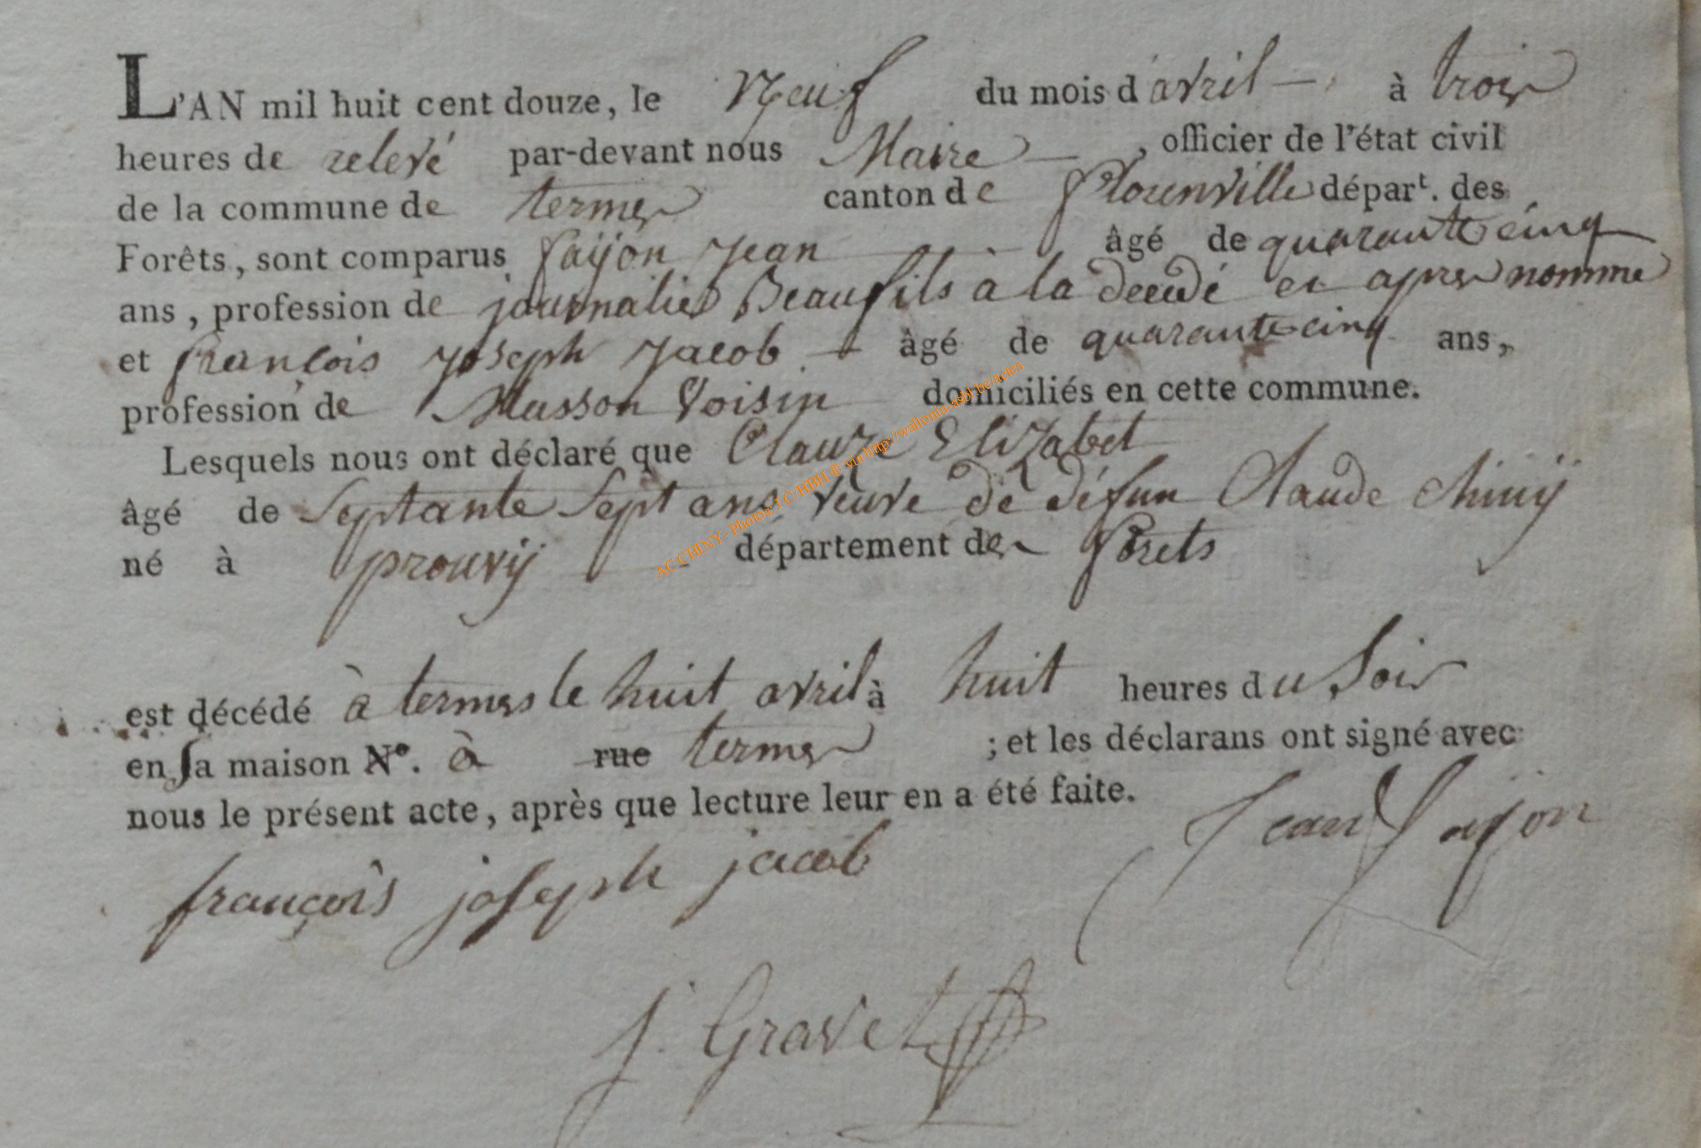 L'AN mil huit cent douze, le neuf du mois d'avril à trois
heures de relevé par-devant nous Maire, officier de l'état civil
de la commune de termes canton de florenville départ. des
Forêts, sont comparus faijon jean âgé de quarante cinq
ans, profession de journalier Beaufils à la decedé ci apres nommé
et françois joseph jacob âgé de quarante cinq ans,
profession de Masson Voisin domiciliés en cette commune.
Lesquels nous ont déclaré que Clauze Elizabet
âgé de septante sept ans veuve de défun Claude chinij
né à prouvij département des forets
est décédé à termes le huit avril à huit heures du soir
en sa maison N°. à rue termes ; et les déclarans ont signé avec
nous le présent acte, après que lecture leur en a été faite.
jean faijon
françois joseph jacob
j. Gravet
ACCHINY- Photos TC/RBH @ via http://wallonia-asbl.be/actes